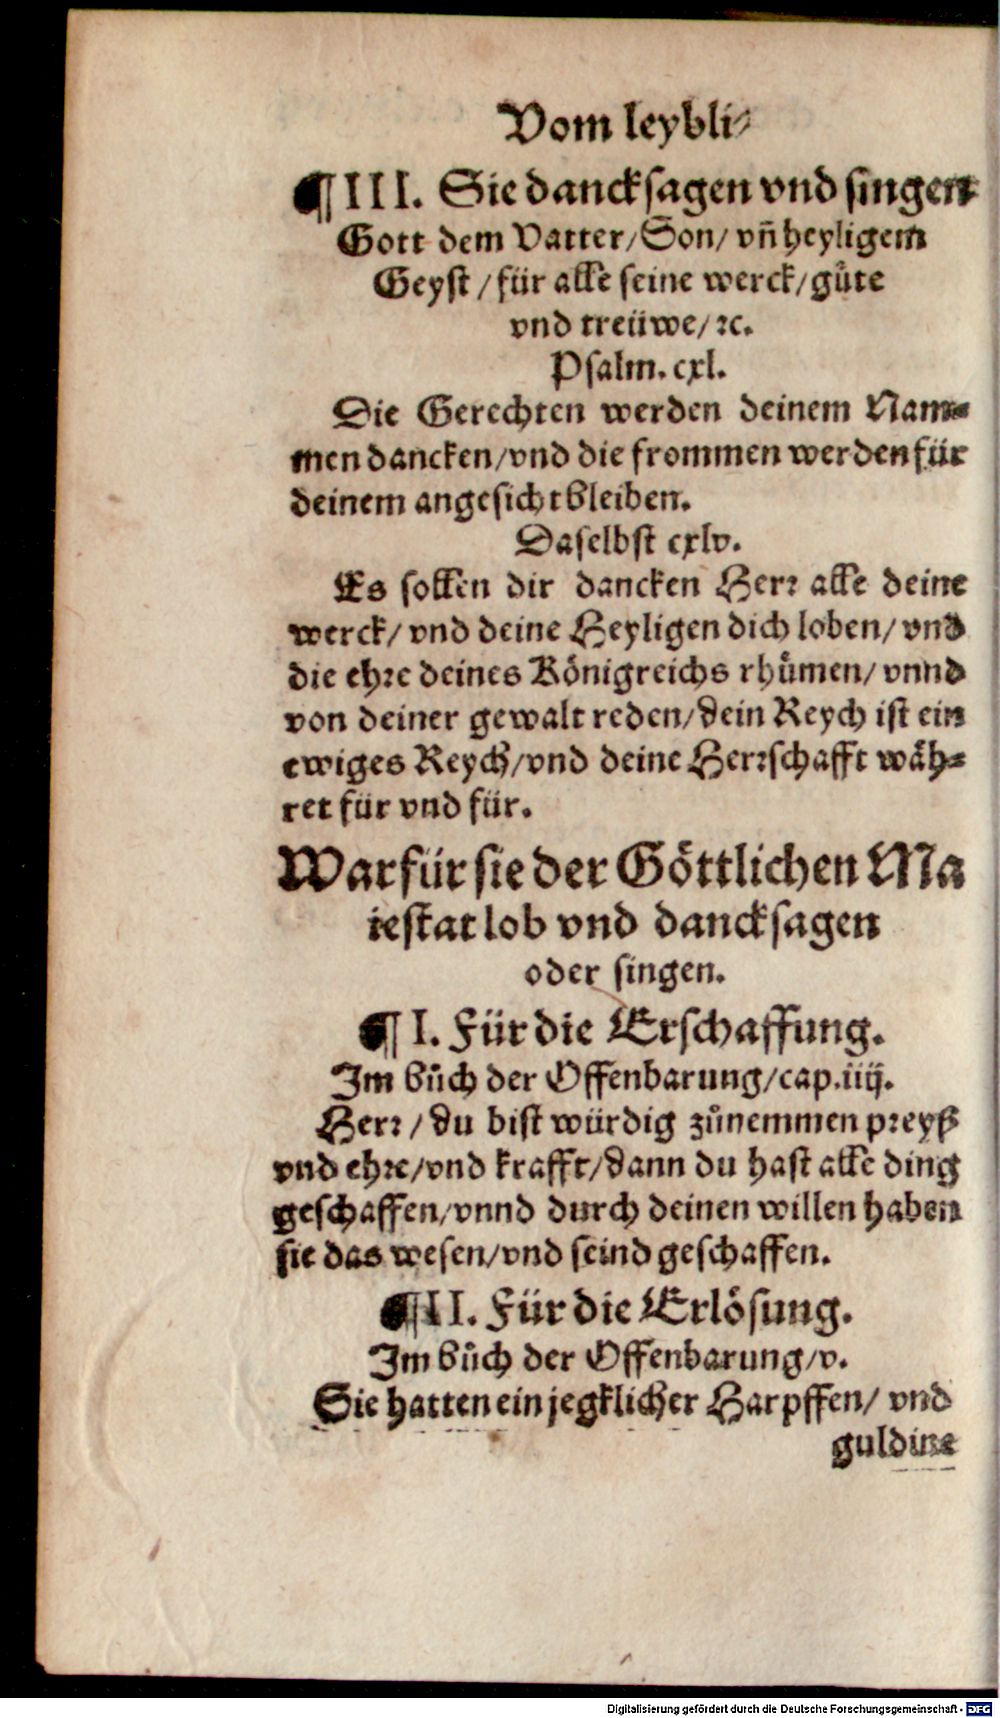 Vom leybli⸗
¶ III. Sie dancksagen vnd singen
Gott dem Vatter/ Son/ vñ heyligem
Geyst / für alle seine werck/ guͤte
vnd treüwe/ ꝛc.
Psalm. cxl.
Die Gerechten werden deinem Nam⸗
men dancken/ vnd die frommen werden für
deinem angesicht bleiben.
Daselbst cxlv.
Es sollen dir dancken Herꝛ alle deine
werck/ vnd deine Heyligen dich loben/ vnd
die ehꝛe deines Koͤnigreichs rhuͤmen/ vnnd
von deiner gewalt reden/ dein Reych ist ein
ewiges Reych/ vnd deine Herꝛschafft waͤh⸗
ret für vnd für.
Warfür sie der Goͤttlichen Ma
iestat lob vnd dancksagen
oder singen.
¶ I. Für die Erschaffung.
Im buͦch der Offenbarung/ cap. iiij.
Herꝛ / du bist würdig zuͦnemmen pꝛeyß
vnd ehꝛe/ vnd krafft/ dann du hast alle ding
geschaffen/ vnnd durch deinen willen haben
sie das wesen/ vnd seind geschaffen.
¶ II. Für die Erloͤsung.
Im buͦch der Offenbarung/ v.
Sie hatten ein jegklicher Harpffen/ vnd
guldine
Digitalisierung gefördert durch die Deutsche Forschungsgemeinschaft - DFG